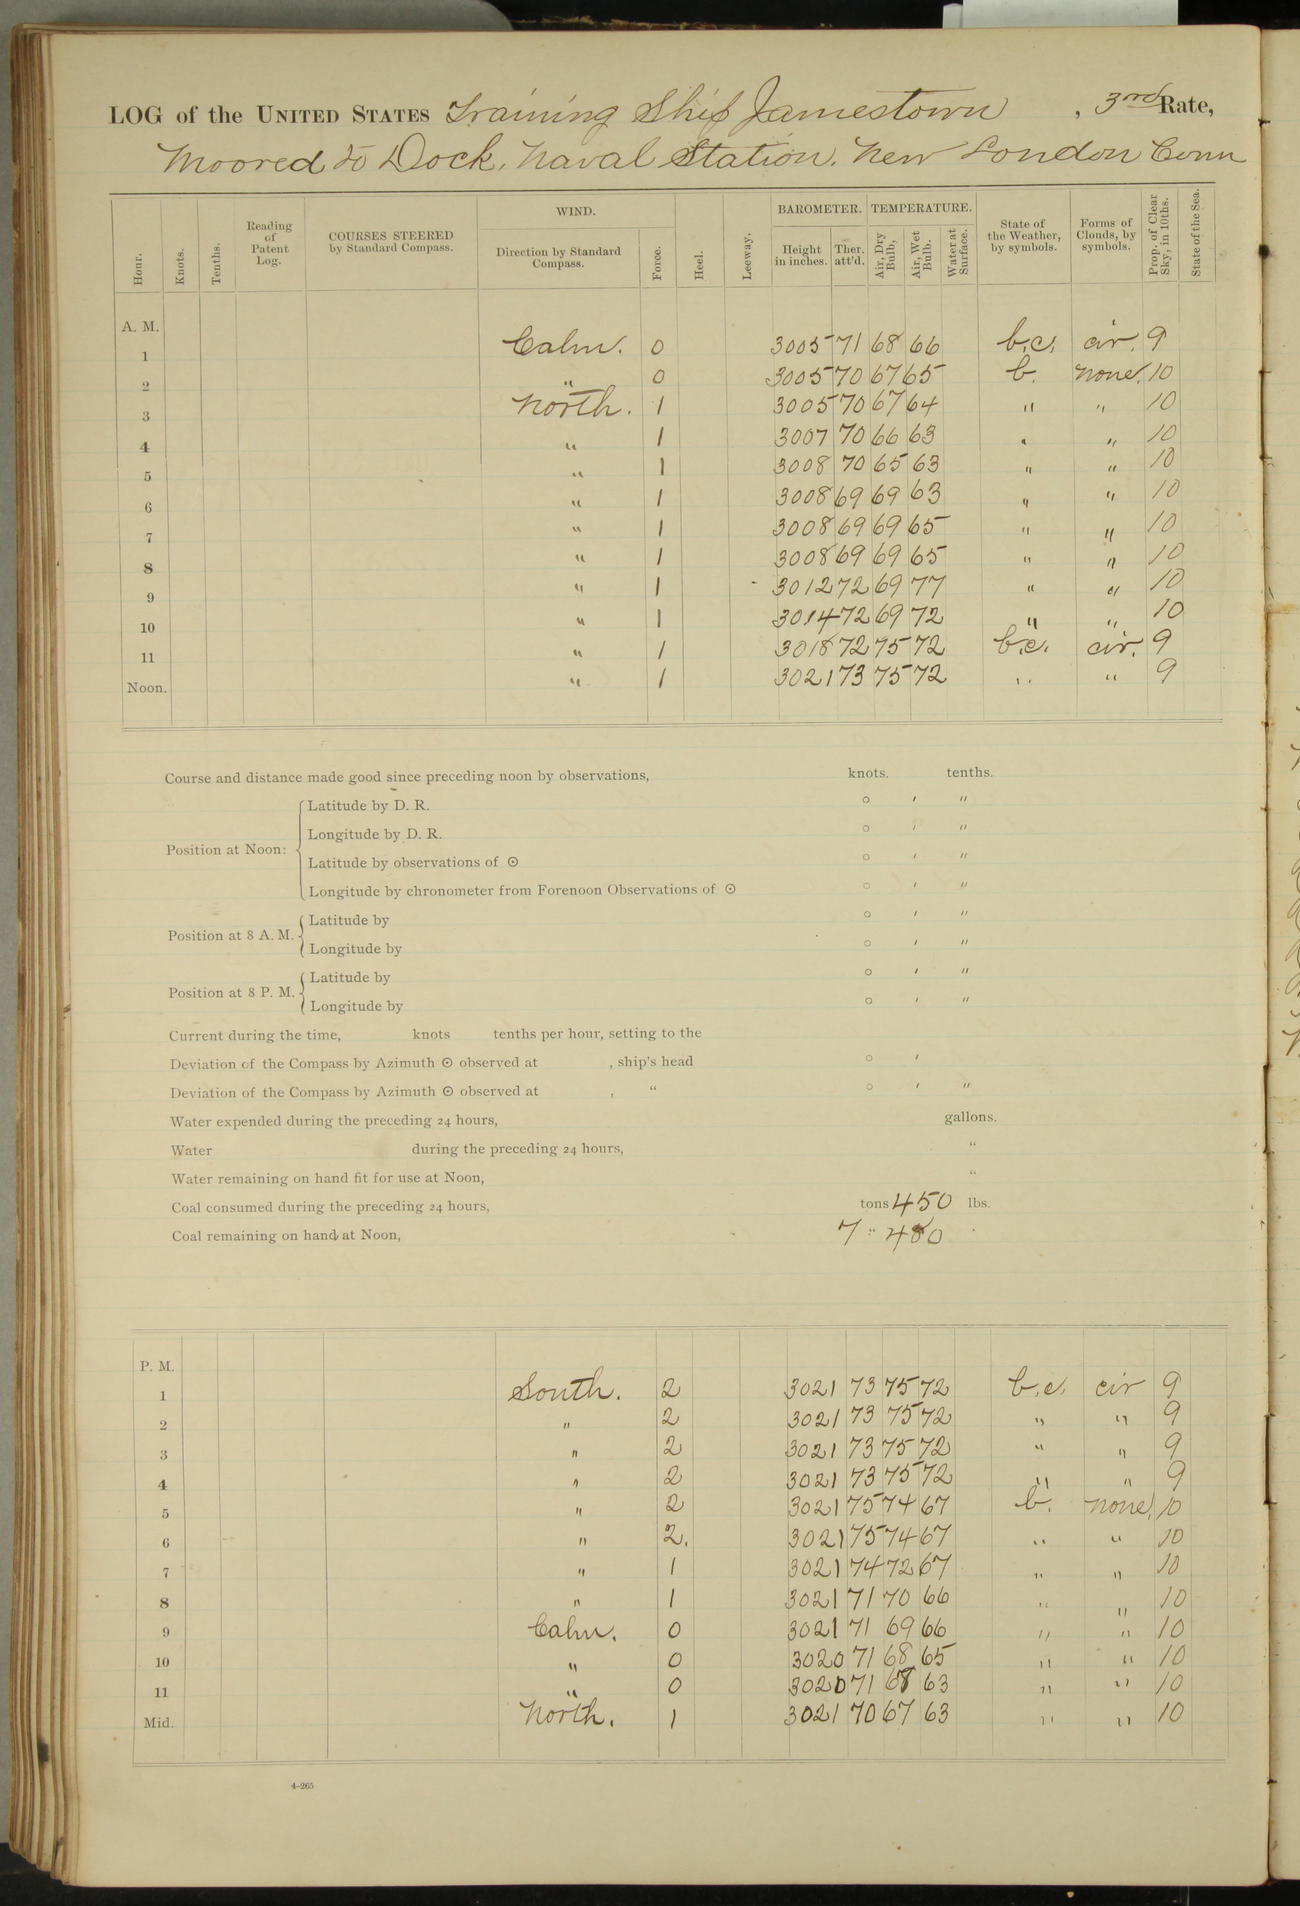 LOG of the UNITED STATES Training Ship Jamestown , 3rd Rate,
Moored to Dock, Naval Station, New London Conn
WIND. BAROMETER. TEMPERATURE.
Hour. Knots. Tenths. Reading of Patent Log. COURSES STEERED by Standard Compass. Direction by Standard Compass. Force. Heel. Leeway. Height in inches. Ther. att'd. Air, Dry Bulb, Air, Wet Bulb. Water at Surface. State of the Weather, by symbols. Forms of Clouds, by symbols. Prop. of Clear Sky, in 10ths. State of the Sea.
A. M.
1 Calm. 0 3005 71 68 66 b.c. cir. 9
2 " 0 3005 70 67 65 b. none. 10
3 North. 1 3005 70 67 64 " " 10
4 " 1 3007 70 66 63 " " 10
5 " 1 3008 70 65 63 " " 10
6 " 1 3008 69 69 63 " " 10
7 " 1 3008 69 69 65 " " 10
8 " 1 3008 69 69 65 " " 10
9 " 1 3012 72 69 77 " " 10
10 " 1 3014 72 69 72 " " 10
11 " 1 3018 72 75 72 b.c. cir. 9
Noon. " 1 3021 73 75 72 " " 9
Course and distance made good since preceding noon by observations, knots. tenths.
Position at Noon:
Latitude by D. R. ° ′ ″
Longitude by D. R. ° ′ ″
Latitude by observations of ⊙ ° ′ ″
Longitude by chronometer from Forenoon Observations of ⊙ ° ′ ″
Position at 8 A. M.
Latitude by ° ′ ″
Longitude by ° ′ ″
Position at 8 P. M.
Latitude by ° ′ ″
Longitude by ° ′ ″
Current during the time, knots tenths per hour, setting to the
Deviation of the Compass by Azimuth ⊙ observed at , ship's head ° ′
Deviation of the Compass by Azimuth ⊙ observed at , " ° ′ ″
Water expended during the preceding 24 hours, gallons.
Water during the preceding 24 hours, "
Water remaining on hand fit for use at Noon, "
Coal consumed during the preceding 24 hours, tons 450 lbs.
Coal remaining on hand at Noon, 7 " 480
P. M.
1 South. 2 3021 73 75 72 b.c. cir 9
2 " 2 3021 73 75 72 " " 9
3 " 2 3021 73 75 72 " " 9
4 " 2 3021 73 75 72 " " 9
5 " 2 3021 75 74 67 b. none. 10
6 " 2. 3021 75 74 67 " " 10
7 " 1 3021 74 72 67 " " 10
8 " 1 3021 71 70 66 " " 10
9 Calm. 0 3021 71 69 66 " " 10
10 " 0 3020 71 68 65 " " 10
11 " 0 3020 71 68 63 " " 10
Mid. North. 1 3021 70 67 63 " " 10
4-265